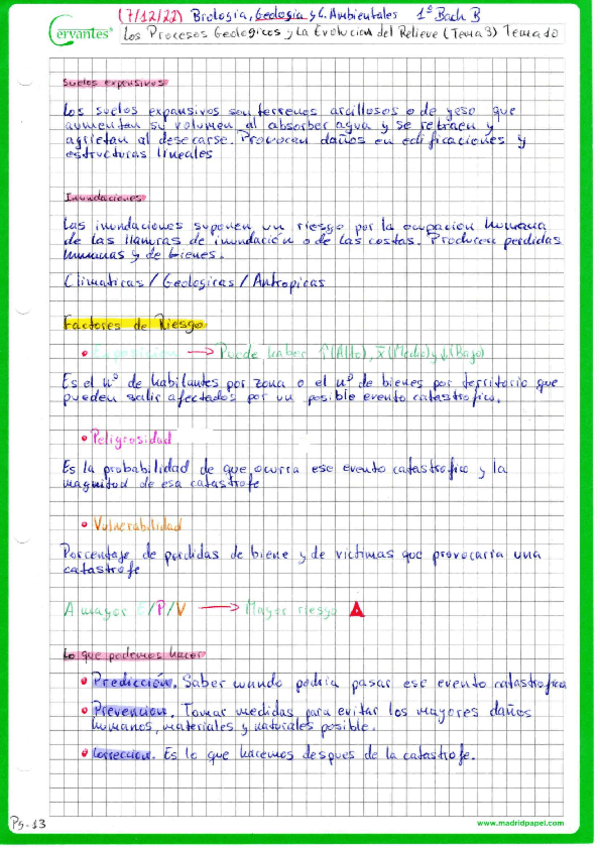 (7/12/22) Biologia, Geologia y C. Ambientales 1º Bach B
Cervantes®
Los Procesos Geologicos y La Evolucion del Relieve (Tema 3) Tema 10
Suelos expansivos
Los suelos expansivos son terrenos arcillosos o de yeso que
aumentan su volumen al absorber agua y se retraen y
agrietan al desecarse. Provocan daños en edificaciones y
estructuras lineales
Inundaciones
Las inundaciones suponen un riesgo por la ocupacion humana
de las llanuras de inundación o de las costas. Producen perdidas
humanas y de bienes.
Climaticas / Geologicas / Antropicas
Factores de Riesgo
• Exposicion → Puede haber ↑(Alto), x̄ (Medio) y ↓(Bajo)
Es el nº de habilantes por zona o el nº de bienes por territorio que
pueden salir afectados por un posible evento catastrofico.
• Peligrosidad
Es la probabilidad de que ocurra ese evento catastrofico y la
magnitud de esa catastrofe
• Vulnerabilidad
Porcentaje de perdidas de biene y de victimas que provocarria una
catastrofe
A mayor E/P/V → Mayor riesgo
Lo que podemos hacer
• Predicción. Saber cuando podria pasar ese evento catastrofico
• Prevencion. Tomar medidas para evitar los mayores daños
humanos, materiales y naturales posible.
• Correccion. Es lo que hacemos despues de la catastrofe.
Pg-13
www.madridpapel.com